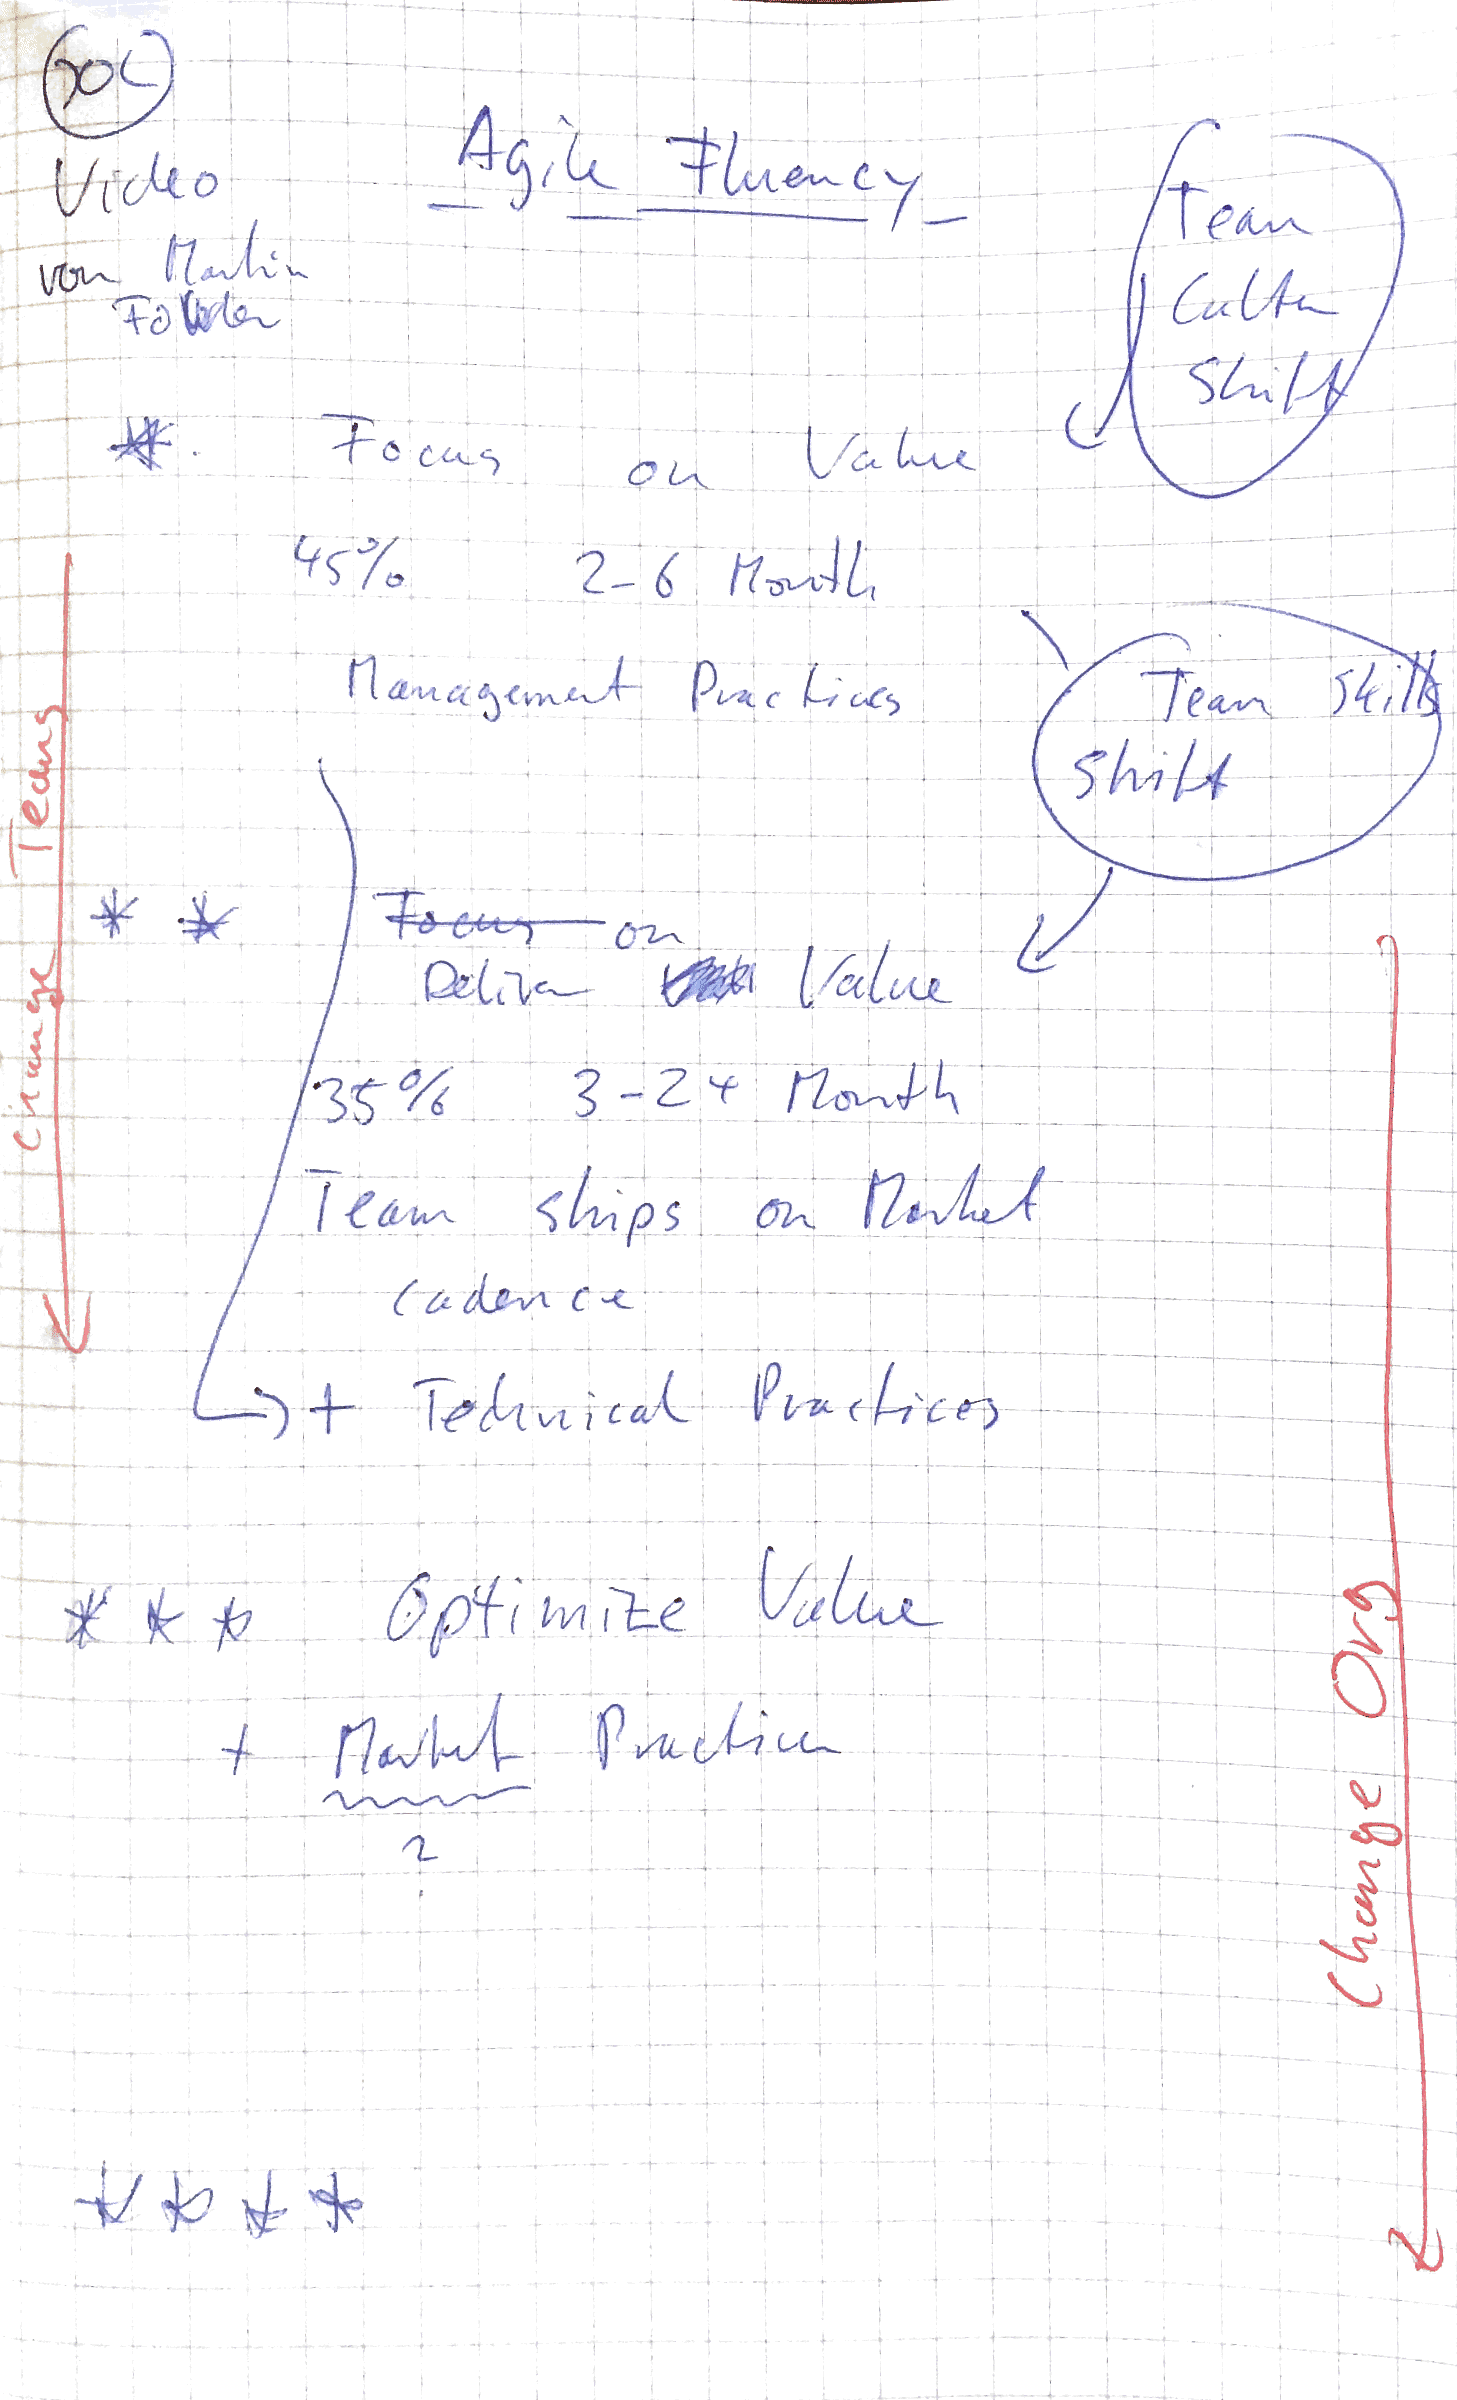 Video
von Martin
Agile Fluency
Team
Culture
Shift
Focus on Value
45% 2-6 Month
Management Practices
Team Skills
Shift
Change Teams
Focus on
Deliver Value
35% 3-24 Month
Team ships on Market
cadence
+ Technical Practices
Optimize Value
+ Market Practices
?
Change Org